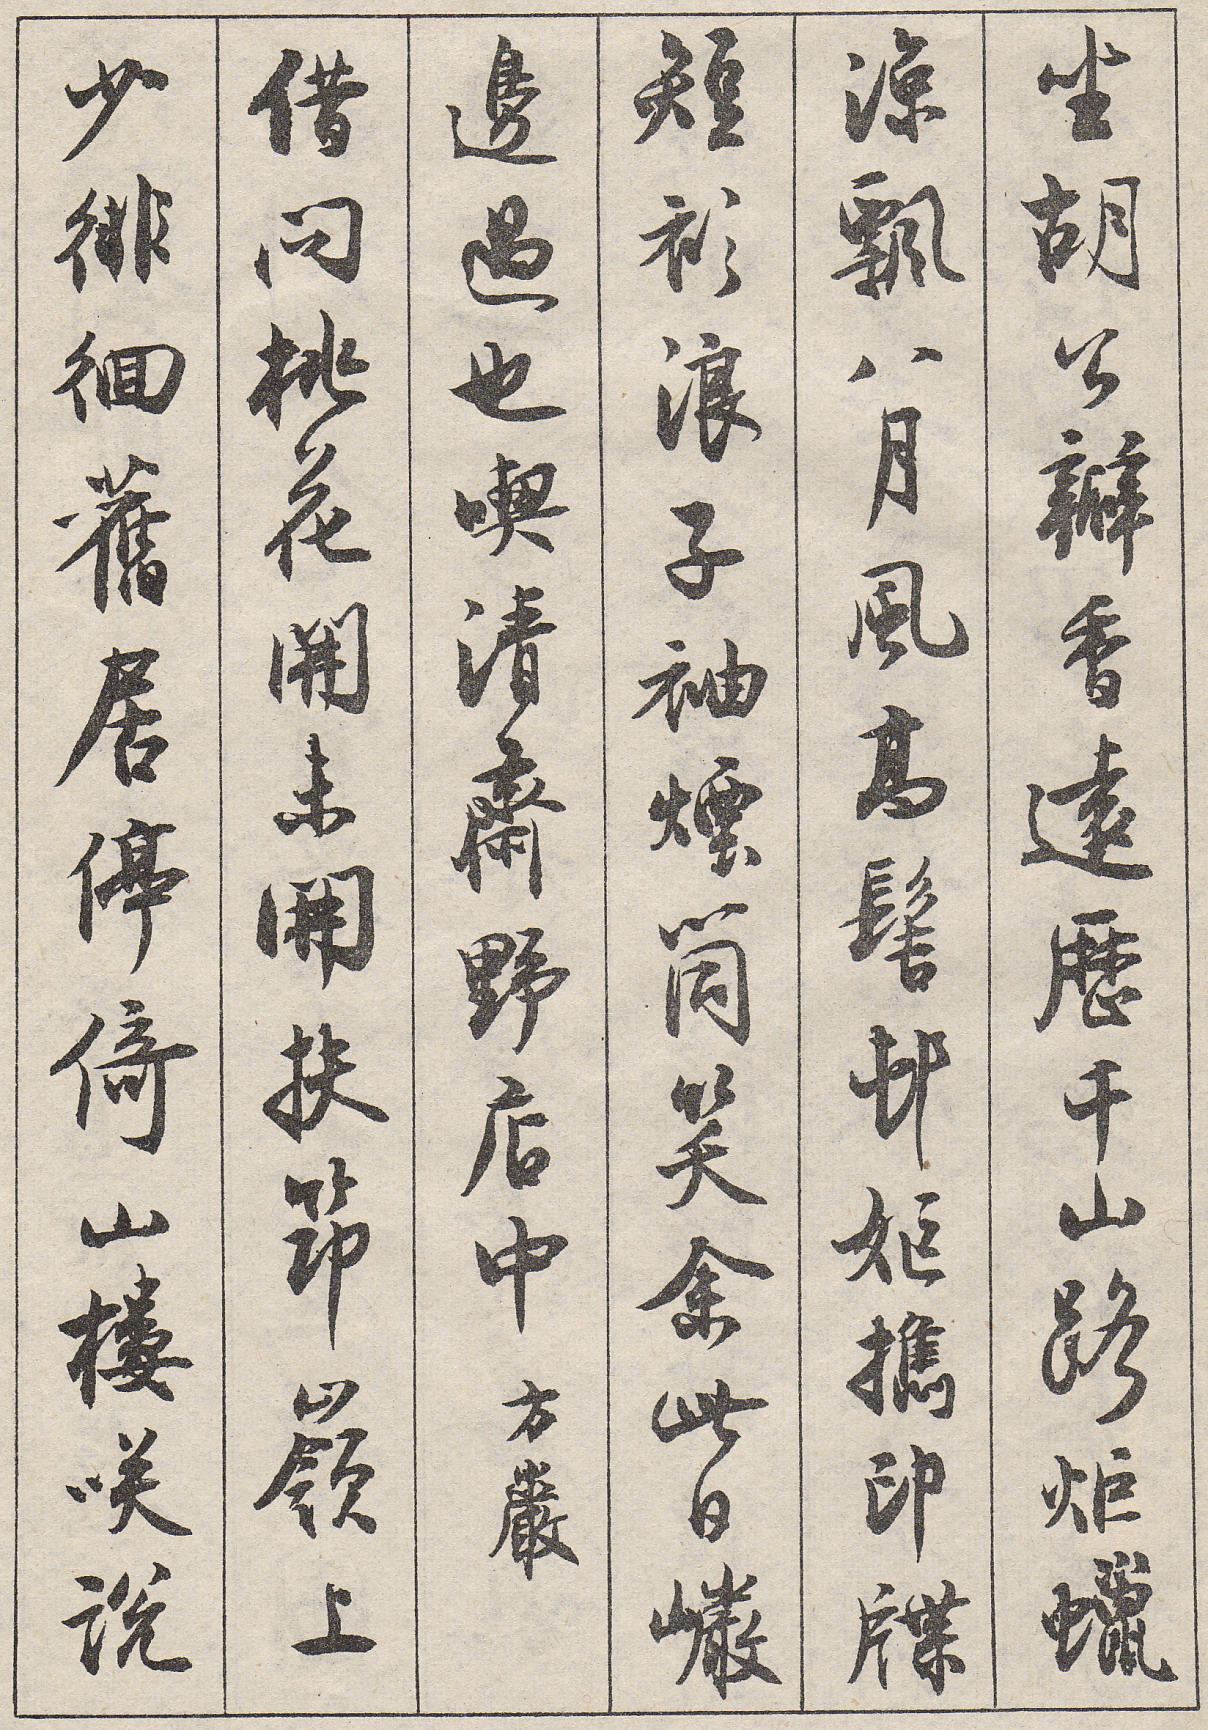 坐胡公瓣香遠歷千山路炬蠟
涼飄八月風高髻邨姬攜印牒
短衫浪子袖煙筒笑余此日巖
邊過也喫清齋野店中 方巖
借問桃花開未開扶筇山嶺上
少徘徊舊居停倚山樓咲說